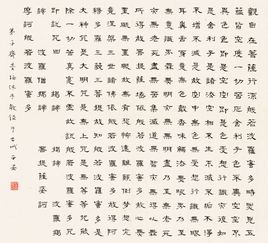 觀自在菩薩行深般若波羅蜜多時照見五
蘊皆空度一切苦厄舍利子色不異空空不
異色色即是空空即是色受想行識亦復如
是舍利子是諸法空相不生不滅不垢不淨
不增不減是故空中無色無受想行識無眼
耳鼻舌身意無色聲香味觸法無眼界乃至
無意識界無無明亦無無明盡乃至無老死
亦無老死盡無苦集滅道無智亦無得以無
所得故菩提薩埵依般若波羅蜜多故心無
罣礙無罣礙故無有恐怖遠離顛倒夢想究
竟涅槃三世諸佛依般若波羅蜜多故得阿
耨多羅三藐三菩提故知般若波羅蜜多是
大神咒是大明咒是無上咒是無等等咒能
除一切苦真實不虛故說般若波羅蜜多咒
即說咒曰 揭諦 揭諦 波羅揭
諦 波羅僧揭諦 菩提薩婆訶
摩訶般若波羅蜜多
弟子